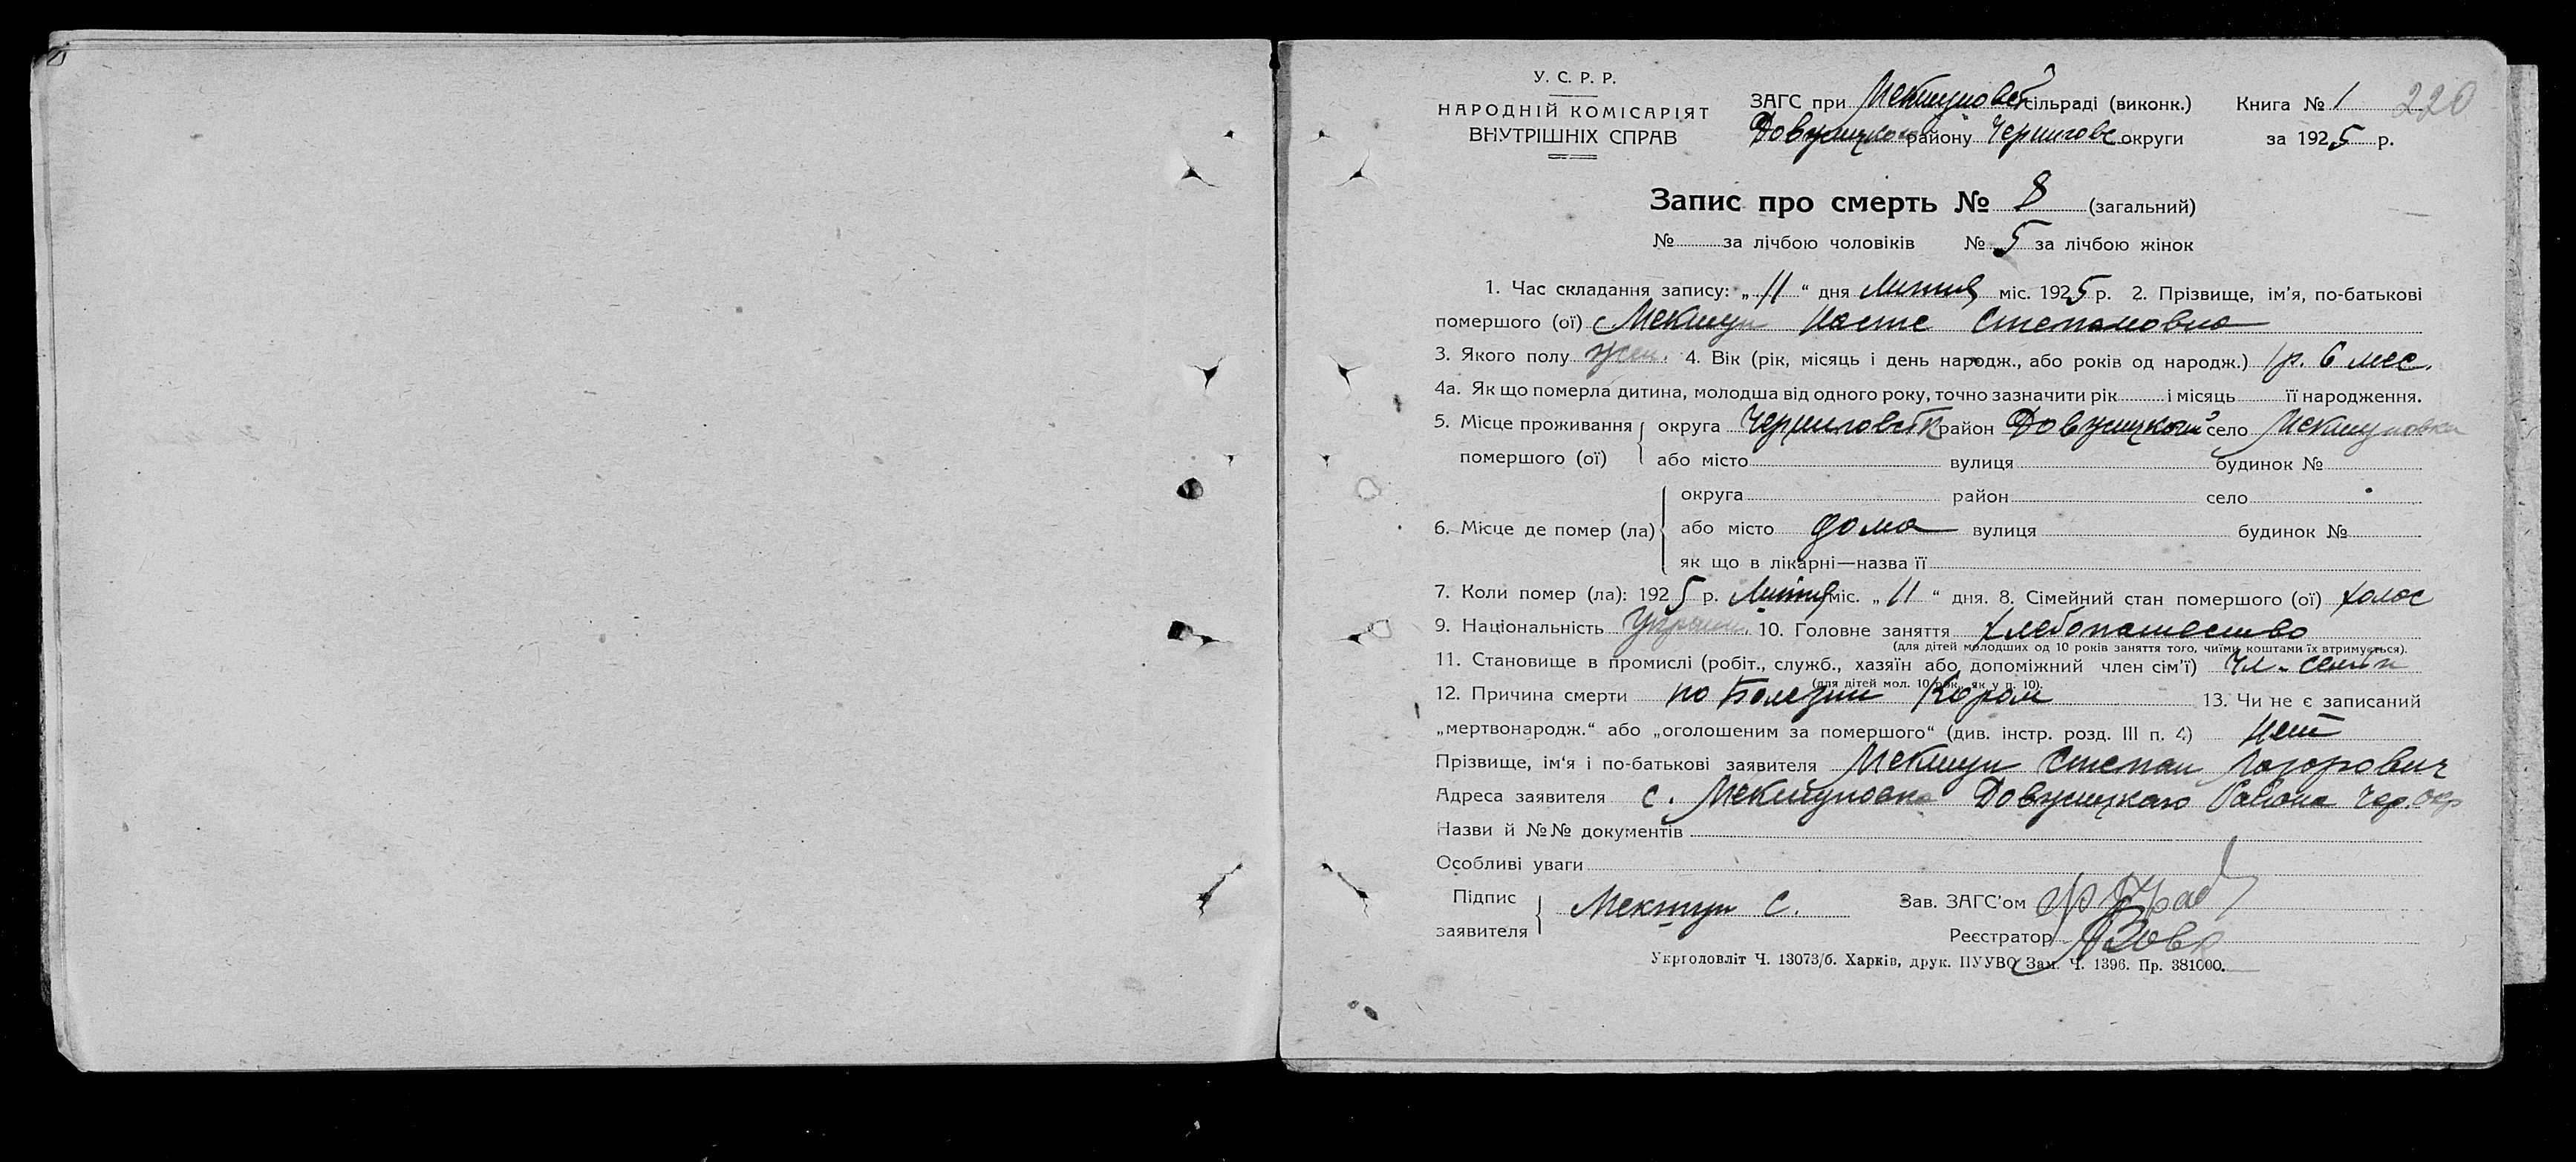 У. С. Р. Р.
НАРОДНІЙ КОМІСАРІЯТ
ВНУТРІШНІХ СПРАВ
ЗАГС при Мекшуновск сільраді (виконк.) Книга № 1 220
району Черниговс округи за 1925 р.
Запис про смерть № 8 (загальний)
№ за лічбою чоловіків № 5 за лічбою жінок
1. Час складання запису: „ 11 “ дня Липня міс. 1925 р. 2. Прізвище, ім'я, по-батькові
помершого (ої) Мекшун Настя Степановна
3. Якого полу жен. 4. Вік (рік, місяць і день народж., або років од народж.) 1 р. 6 мес.
4а. Як що померла дитина, молодша від одного року, точно зазначити рік і місяць її народження.
5. Місце проживання округа Черниговск район село Мекшуновка
помершого (ої) або місто вулиця будинок №
округа район село
6. Місце де помер (ла) або місто дома вулиця будинок №
як що в лікарні—назва її
7. Коли помер (ла): 1925 р. Липня міс. „ 11 “ дня. 8. Сімейний стан помершого (ої) холос
9. Національність Украин. 10. Головне заняття хлебопашество
(для дітей молодших од 10 років заняття того, чиїми коштами їх втримується).
11. Становище в промислі (робіт., служб., хазяїн або допоміжний член сім'ї) чл. семьи
(для дітей мол. 10 рок., як у п. 10).
12. Причина смерти по Болезни Кором 13. Чи не є записаний
„мертвонародж.“ або „оголошеним за помершого“ (див. інстр. розд. III п. 4) нет
Прізвище, ім'я і по-батькові заявителя Мекшун Степан Лазорович
Адреса заявителя с. Мекшуновка Района Чер. окр
Назви й №№ документів
Особливі уваги
Підпис
заявителя Мекшун С. Зав. ЗАГС'ом
Реєстратор
Укрголовліт Ч. 13073/б. Харків, друк. ПУУВО Зам. Ч. 1396. Пр. 381000.